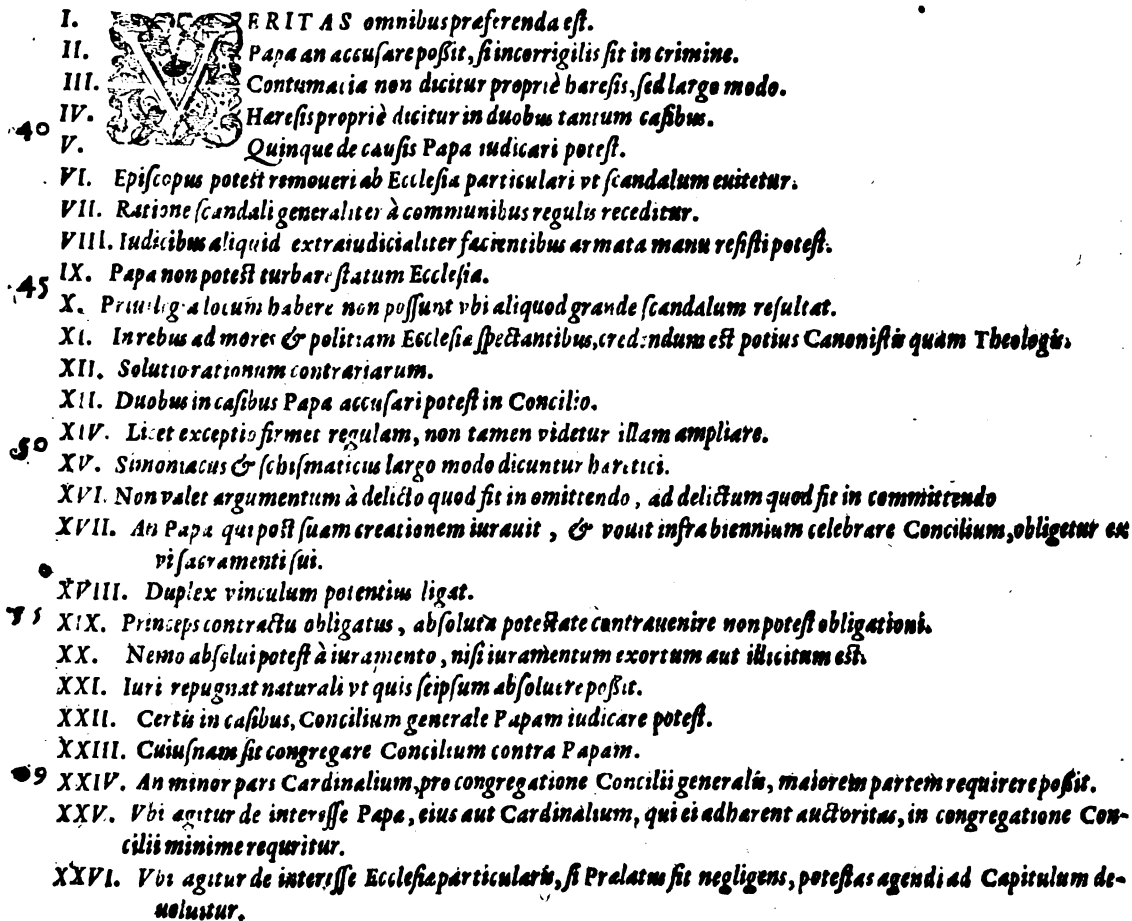 I. VERITAS omnibus præferenda eſt.
II. Papa an accuſare poßit, ſi incorrigilis ſit in crimine.
III. Contumacia non dicitur propriè hæreſis, ſed largo modo.
IV. Hæreſis propriè dicitur in duobus tantum caſibus.
40
V. Quinque de cauſis Papa iudicari poteſt.
VI. Epiſcopus poteſt remoueri ab Eccleſia particulari vt ſcandalum euitetur.
VII. Ratione ſcandali generaliter à communibus regulis receditur.
VIII. Iudicibus aliquid extraiudicialiter facientibus armata manu reſiſti poteſt.
IX. Papa non poteſt turbare ſtatum Eccleſiæ.
45
X. Priuilegia locum habere non poſſunt vbi aliquod grande ſcandalum reſultat.
XI. In rebus ad mores & politiam Eccleſiæ ſpectantibus, credendum eſt potius Canoniſtis quàm Theologis.
XII. Solutio rationum contrariarum.
XII. Duobus in caſibus Papa accuſari poteſt in Concilio.
XIV. Licet exceptio firmet regulam, non tamen videtur illam ampliare.
50
XV. Simoniacus & ſchiſmaticus largo modo dicuntur hæretici.
XVI. Non valet argumentum à delicto quod fit in omittendo, ad delictum quod fit in committendo
XVII. An Papa qui poſt ſuam creationem iurauit, & vouit infra biennium celebrare Concilium, obligetur ex
vi ſacramenti ſui.
XVIII. Duplex vinculum potentius ligat.
XIX. Princeps contractu obligatus, abſoluta poteſtate contrauenire non poteſt obligationi.
XX. Nemo abſolui poteſt à iuramento, niſi iuramentum exortum aut illicitum eſt.
XXI. Iuri repugnat naturali vt quis ſeipſum abſoluere poßit.
XXII. Certis in caſibus, Concilium generale Papam iudicare poteſt.
XXIII. Cuiuſnam ſit congregare Concilium contra Papam.
XXIV. An minor pars Cardinalium, pro congregatione Concilii generalis, maiorem partem requirere poßit.
XXV. Vbi agitur de intereſſe Papæ, eius aut Cardinalium, qui ei adhærent auctoritas, in congregatione Con-
cilii minime requritur.
XXVI. Vbi agitur de intereſſe Eccleſiæ particularis, ſi Prælatus ſit negligens, poteſtas agendi ad Capitulum de-
uoluitur.